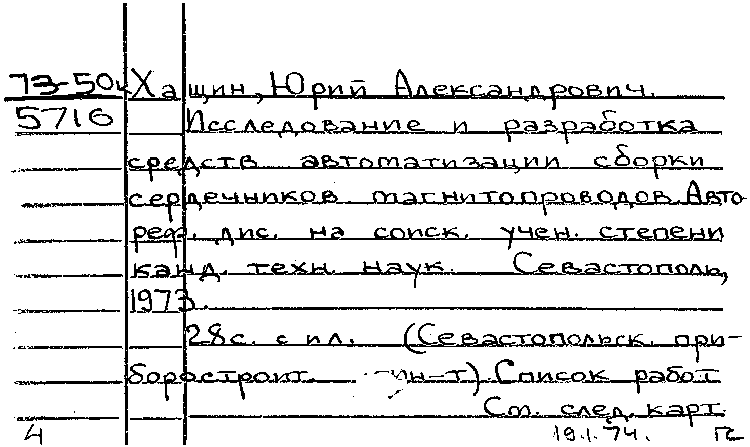 73-50к Хащин, Юрий Александрович.
5716 Исследование и разработка
средств автоматизации сборки
сердечников магнитопроводов. Авто-
реф. дис. на соиск. учен. степени
канд. техн. наук. Севастополь,
1973.
28с. с ил. (Севастопольск. при-
боростроит. ин-т). Список работ
См. след. карт.
4 19.1.74. Гс